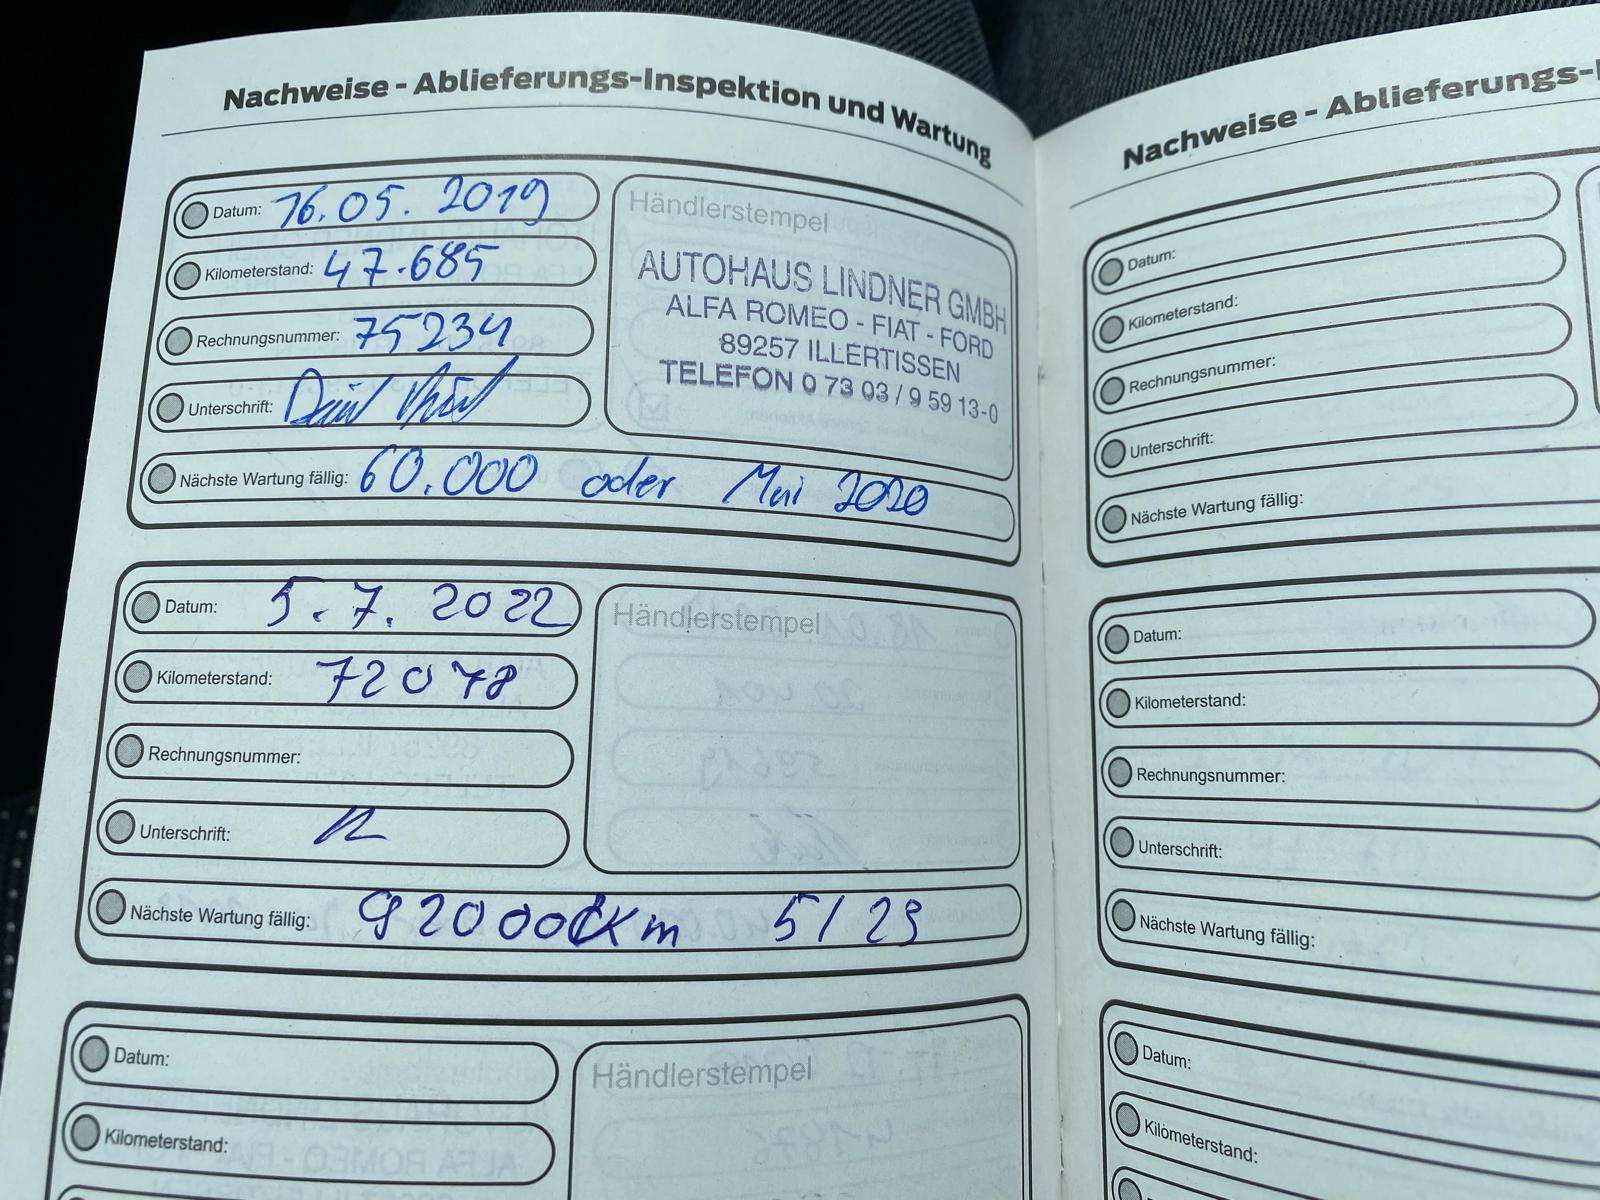 Nachweise - Ablieferungs-Inspektion und Wartung
Datum: 16.05.2019
Kilometerstand: 47.685
Rechnungsnummer: 75234
Unterschrift:
Nächste Wartung fällig: 60.000 oder Mai 2020
Händlerstempel
AUTOHAUS LINDNER GMBH
ALFA ROMEO - FIAT - FORD
89257 ILLERTISSEN
TELEFON 0 73 03 / 9 59 13-0
Datum: 5.7.2022
Kilometerstand: 72078
Rechnungsnummer:
Unterschrift:
Nächste Wartung fällig: 92000 Km 5/23
Händlerstempel
Datum:
Kilometerstand:
Händlerstempel
Nachweise - Ablieferungs-
Datum:
Kilometerstand:
Rechnungsnummer:
Unterschrift:
Nächste Wartung fällig:
Datum:
Kilometerstand:
Rechnungsnummer:
Unterschrift:
Nächste Wartung fällig:
Datum:
Kilometerstand: